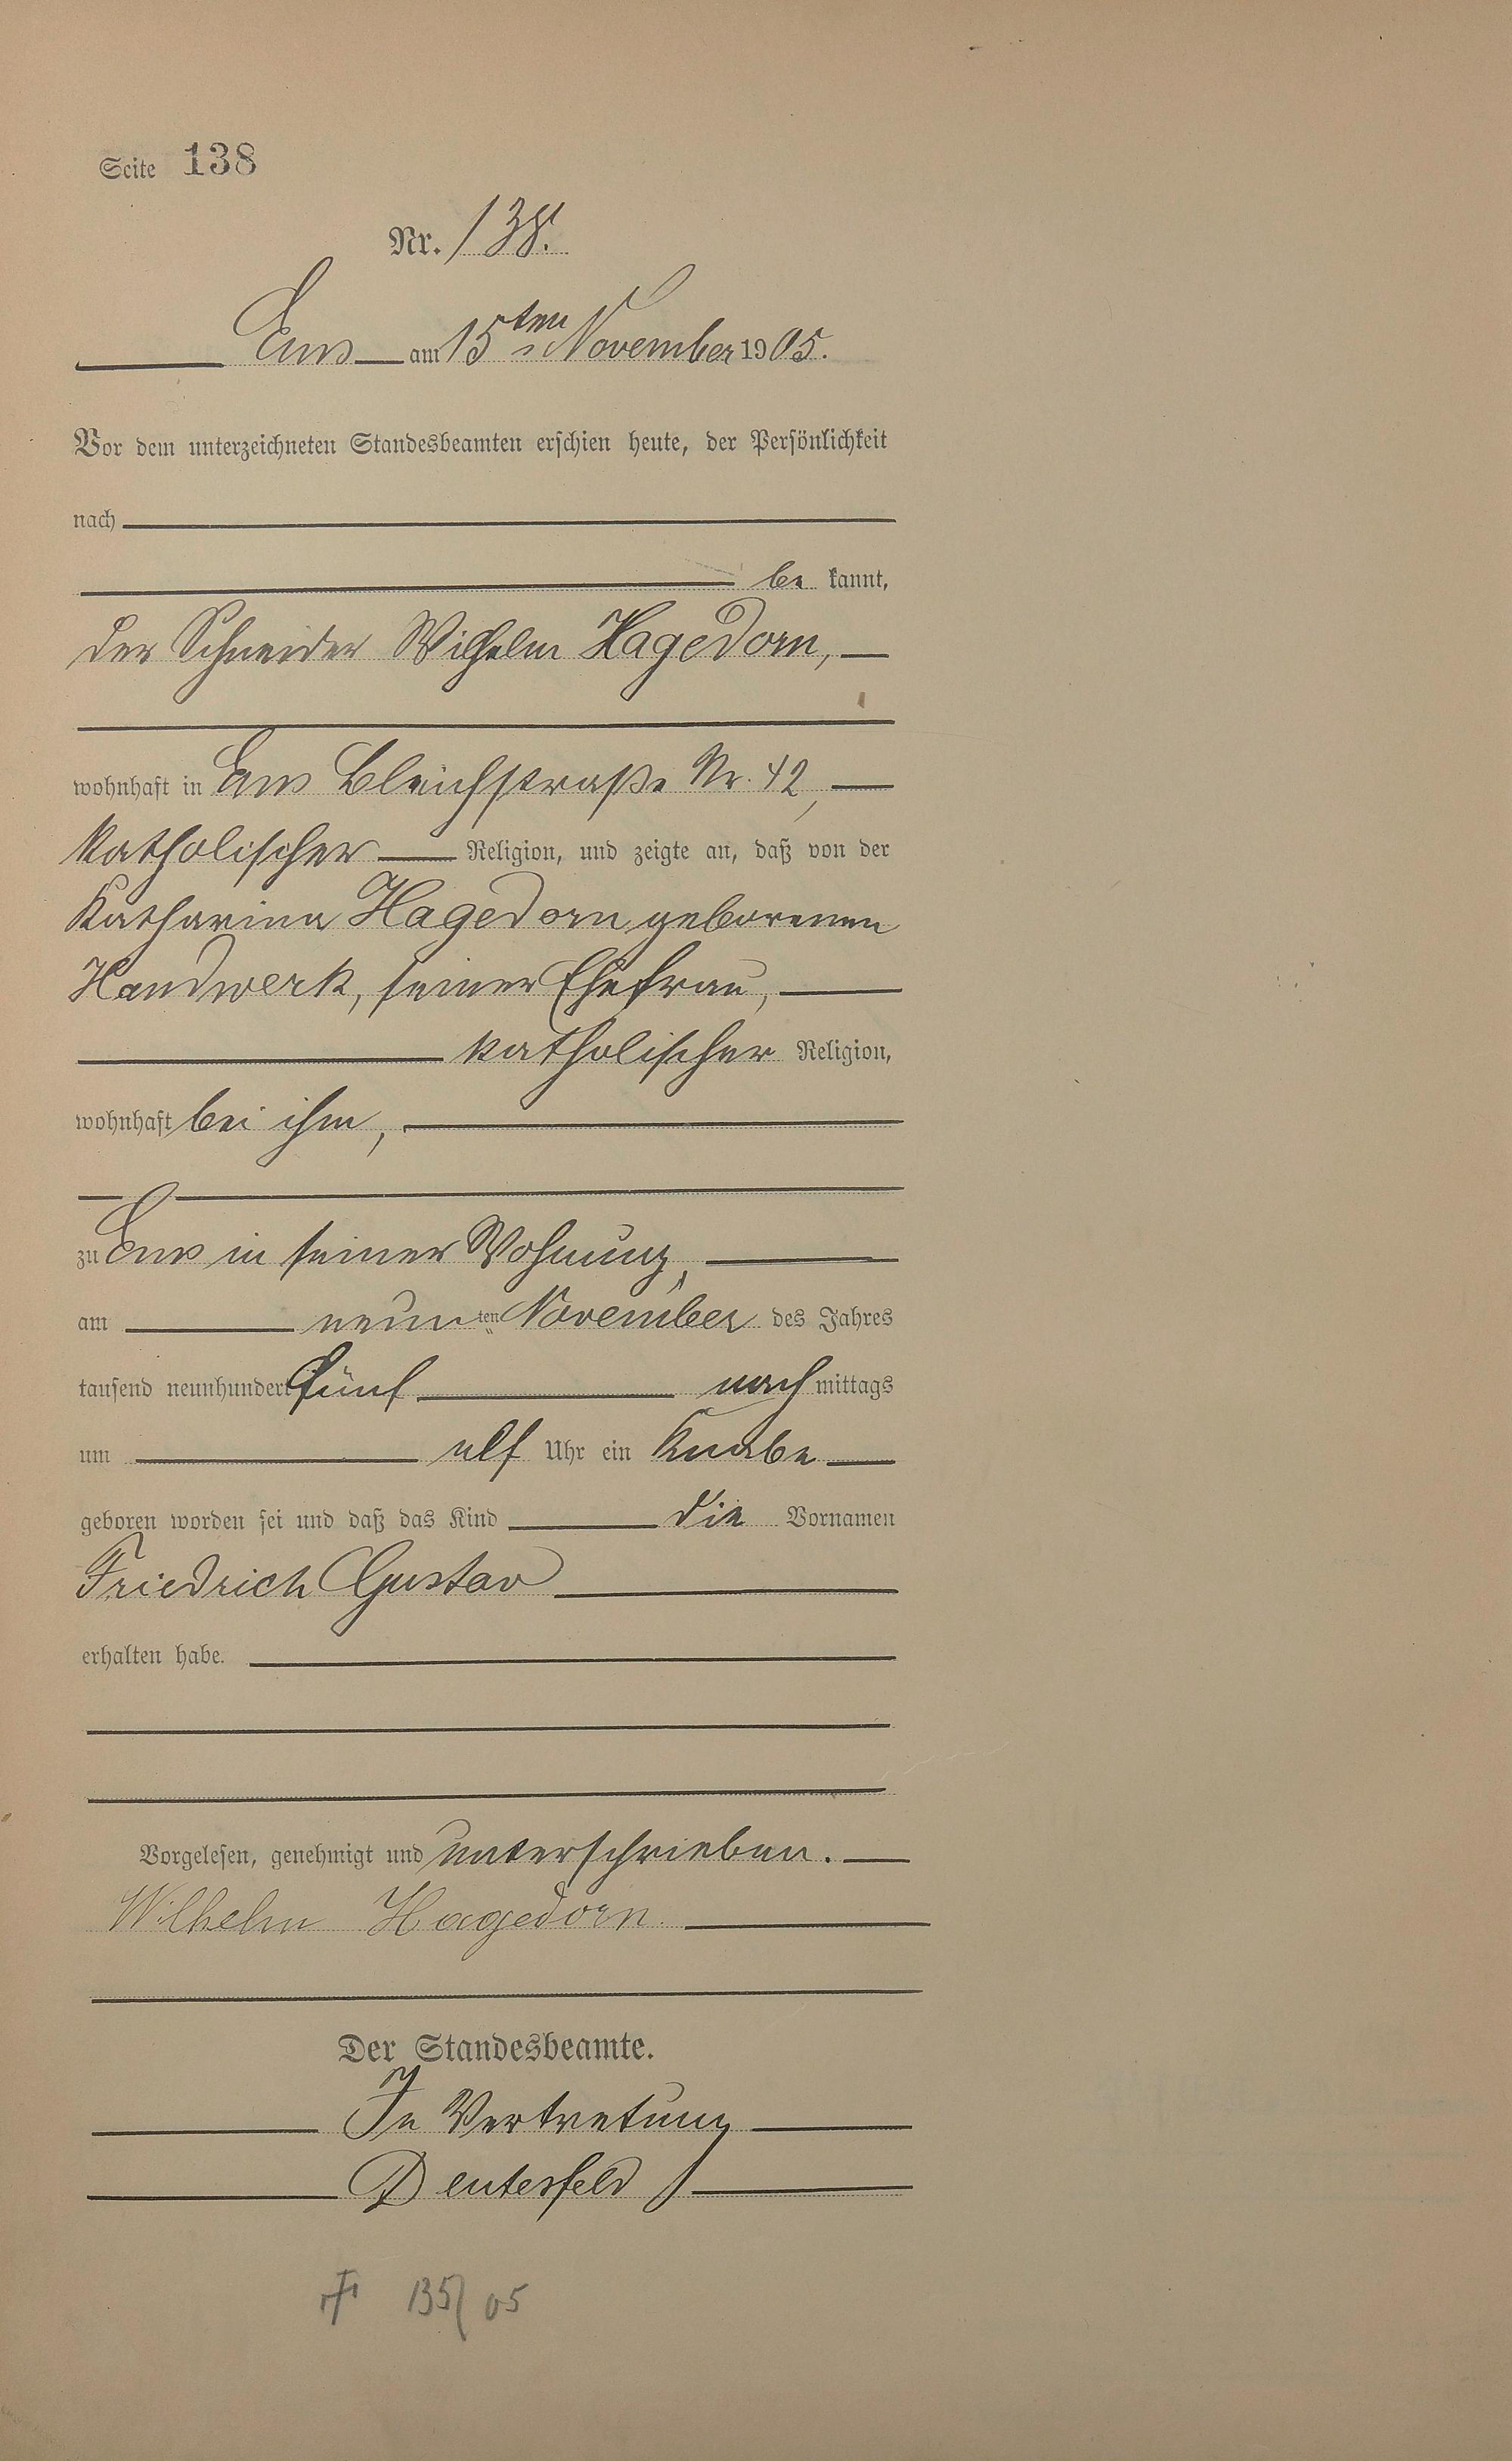 Seite 138
Nr. 138.
Ems am 15ten November 1905.
Vor dem unterzeichneten Standesbeamten erschien heute, der Persönlichkeit
nach
be kannt,
der Schneider Wilhelm Hagedorn,
wohnhaft in Ems Bleichstraße Nr. 42,
katholischer Religion, und zeigte an, daß von der
Katharina Hagedorn geborenen
Handwerk, seiner Ehefrau,
katholischer Religion,
wohnhaft bei ihm,
zu Ems in seiner Wohnung,
am neunten November des Jahres
tausend neunhundert fünf nachmittags
um elf Uhr ein Knabe
geboren worden sei und daß das Kind die Vornamen
Friedrich Gustav
erhalten habe.
Vorgelesen, genehmigt und unterschrieben.
Wilhelm Hagedorn.
Der Standesbeamte.
In Vertretung
Deutesfeld
135/05